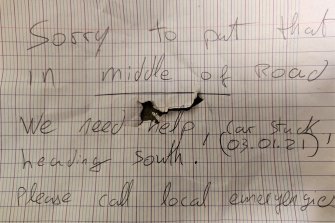 Sorry to put that
in middle of Road
We need help, car stuck (03.01.21),
heading South.
Please call local emergencies